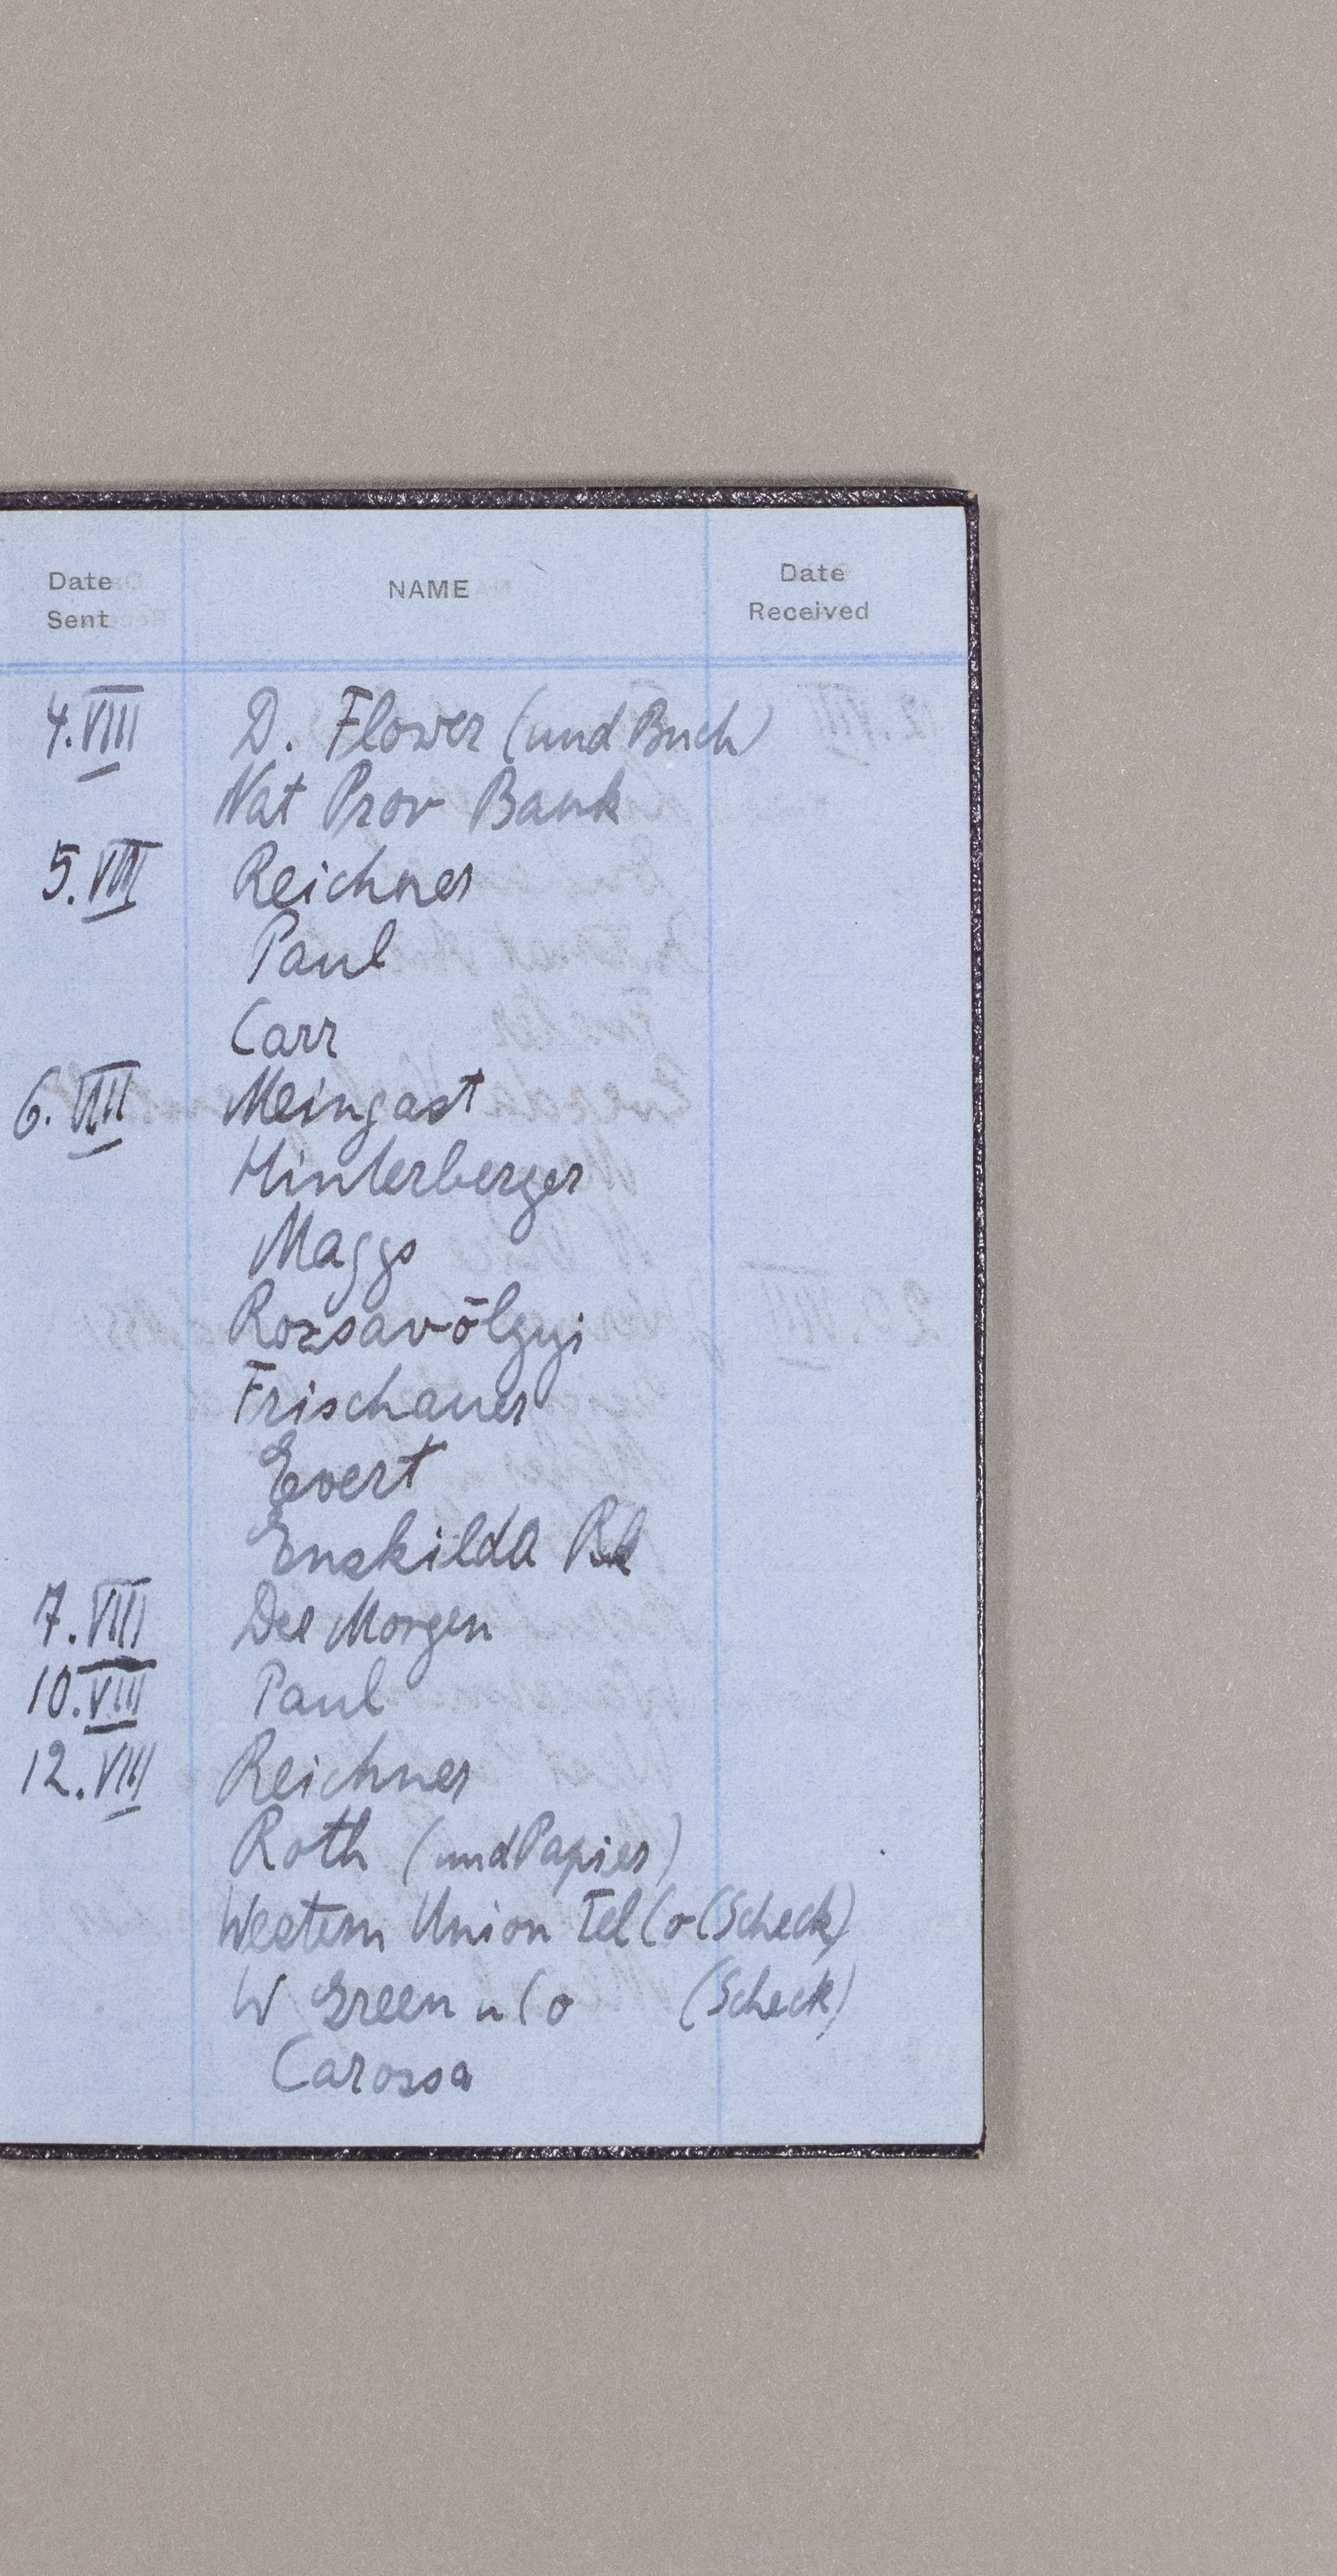 Date Sent NAME Date Received
4.VIII D. Flower (und Buch)
Nat Prov Bank
5.VIII Reichner
Paul
Carr
6.VIII Meingast
Hinterberger
Maggs
Rozsavölgyi
Frischauer
Evert
Enskilda Bk
7.VIII Del Morgen
10.VIII Paul
12.VIII Reichner
Roth (und Papier)
Western Union Tel Co (Scheck)
W Green u Co (Scheck)
Carossa